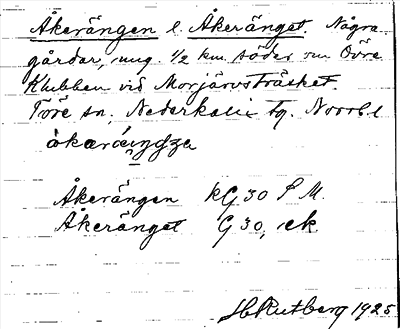 Åkerängen l. Åkeränget. Några
gårdar, ung. ½ km. söder om Övre
Klubben vid Morjärvsträsket.
Töre sn, Nederkalix tg. Norrb. l
Åkerängen kG 30 S M.
Åkeränget G 30, ek.
HRutberg 1925